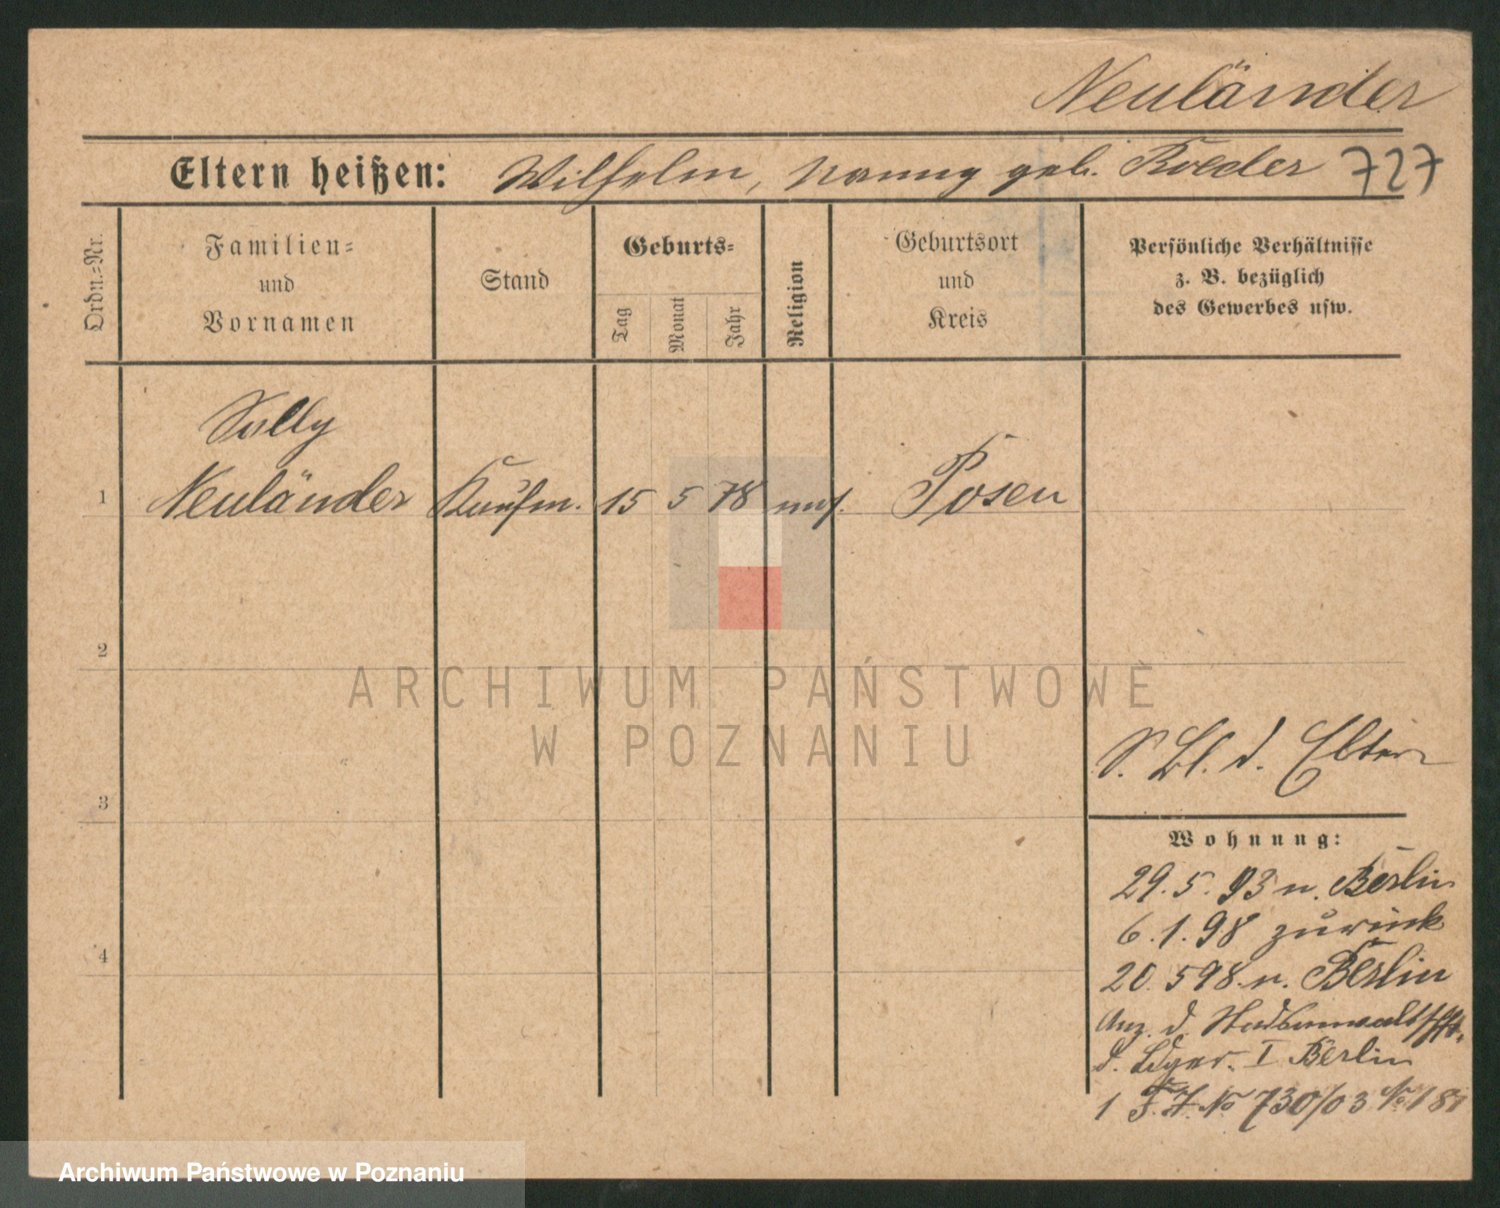 Neuländer
Eltern heißen: Wilhelm, Nanny geb. Roeder 727
Ordn.=Nr.
Familien=
und
Vornamen
Stand
Geburts=
Tag
Monat
Jahr
Religion
Geburtsort
und
Kreis
Persönliche Verhältnisse
z. B. bezüglich
des Gewerbes usw.
Sally
1 Neuländer Kaufm. 15 5 78 mos. Posen
2
ARCHIWUM PAŃSTWOWE
W POZNANIU
S. Bl. d. Eltern
3
Wohnung:
29. 5. 93 n. Berlin
6. 1. 98 zurück
4
20. 5 98. n. Berlin
Anz. d. Staatsanwaltschft.
d. Ldger. I Berlin
1 F. J. No 730/03 No 181
Archiwum Państwowe w Poznaniu